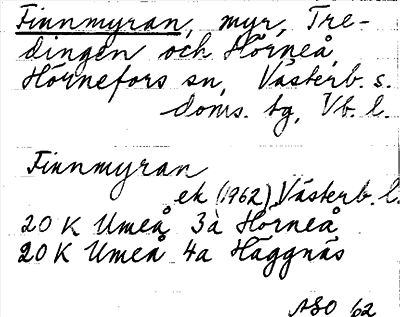 Finnmyran, myr, Tre-
dingen och Hörneå,
Hörnefors sn, Västerb. s.
doms. tg, Vb. l.
Finnmyran
ek (1962) Västerb. l.
20 K Umeå 3a Hörneå
20 K Umeå 4a Häggnäs
ASO 62